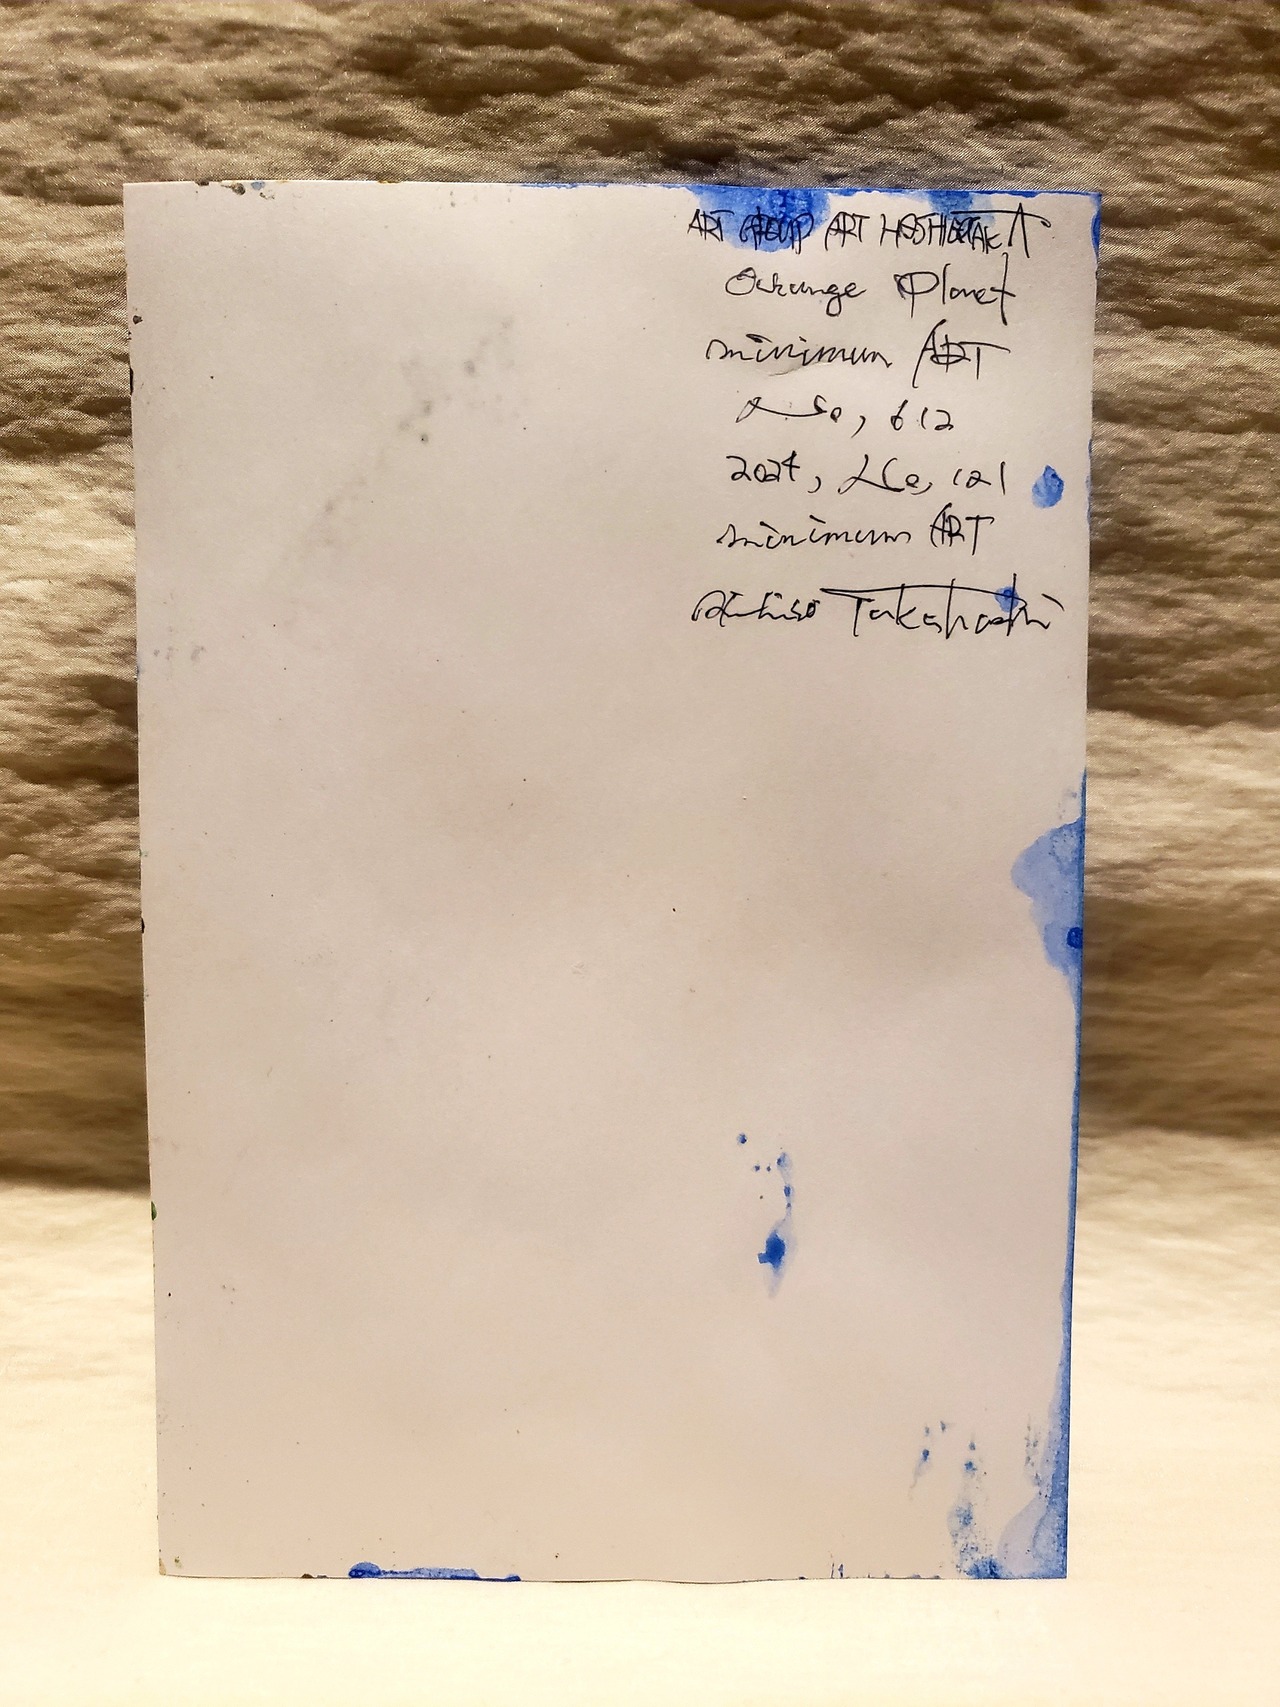 ART GROUP ART HOSHIGETAKA
Orange Planet
minimum ART
No, 612
2024, No, 121
minimum ART
Takahashi